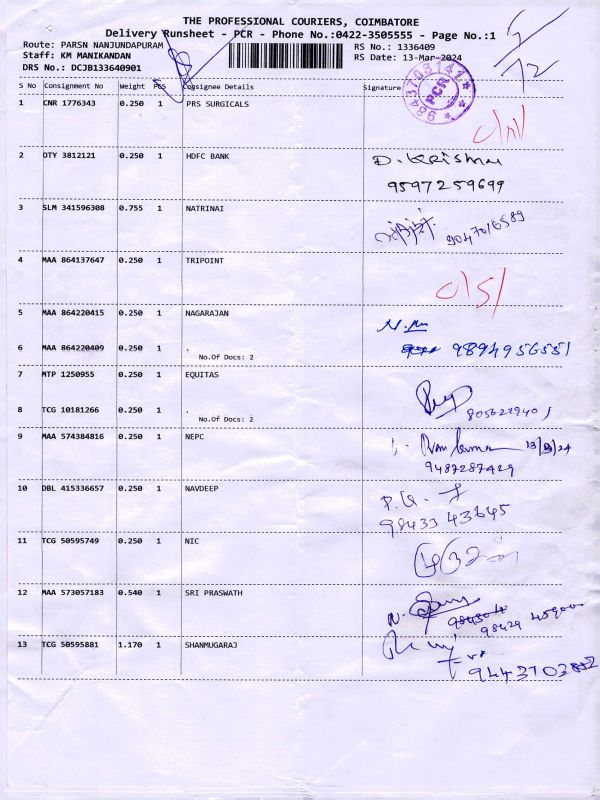 THE PROFESSIONAL COURIERS, COIMBATORE
Delivery Runsheet - PCR - Phone No.:0422-3505555 - Page No.:1
Route: PARSN NANJUNDAPURAM RS No.: 1336409
Staff: KM MANIKANDAN RS Date: 13-Mar-2024
DRS No.: DCJB133640901
PCR
S No Consignment No Weight PCS Consignee Details Signature
1 CNR 1776343 0.250 1 PRS SURGICALS
2 OTY 3812121 0.250 1 HDFC BANK D. Krishna
9597259699
3 SLM 341596308 0.755 1 NATRINAI
9047016589
4 MAA 864137647 0.250 1 TRIPOINT
5 MAA 864220415 0.250 1 NAGARAJAN
6 MAA 864220409 0.250 1 . 9894956551
No.Of Docs: 2
7 MTP 1250955 0.250 1 EQUITAS
8 TCG 10181266 0.250 1 .
No.Of Docs: 2
9 MAA 574384816 0.250 1 NEPC
9487287429
10 DBL 415336657 0.250 1 NAVDEEP
98433 43645
11 TCG 50595749 0.250 1 NIC
12 MAA 573057183 0.540 1 SRI PRASWATH
13 TCG 50595881 1.170 1 SHANMUGARAJ